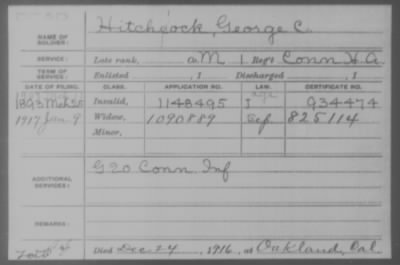 NAME OF SOLDIER: Hitchcock, George C.
SERVICE: Late rank, a M 1 Reg't Conn H. A.
TERM OF SERVICE: Enlisted , 1 Discharged , 1
DATE OF FILING. CLASS. APPLICATION NO. LAW. CERTIFICATE NO.
age
1893 Mch 25 Invalid, 1148495 I 934474
1917 Jan 9 Widow, 1090889 Sep 825114
Minor,
ADDITIONAL SERVICES: G 20 Conn. Inf
REMARKS:
Died Dec 24, 1916, at Oakland, Cal.